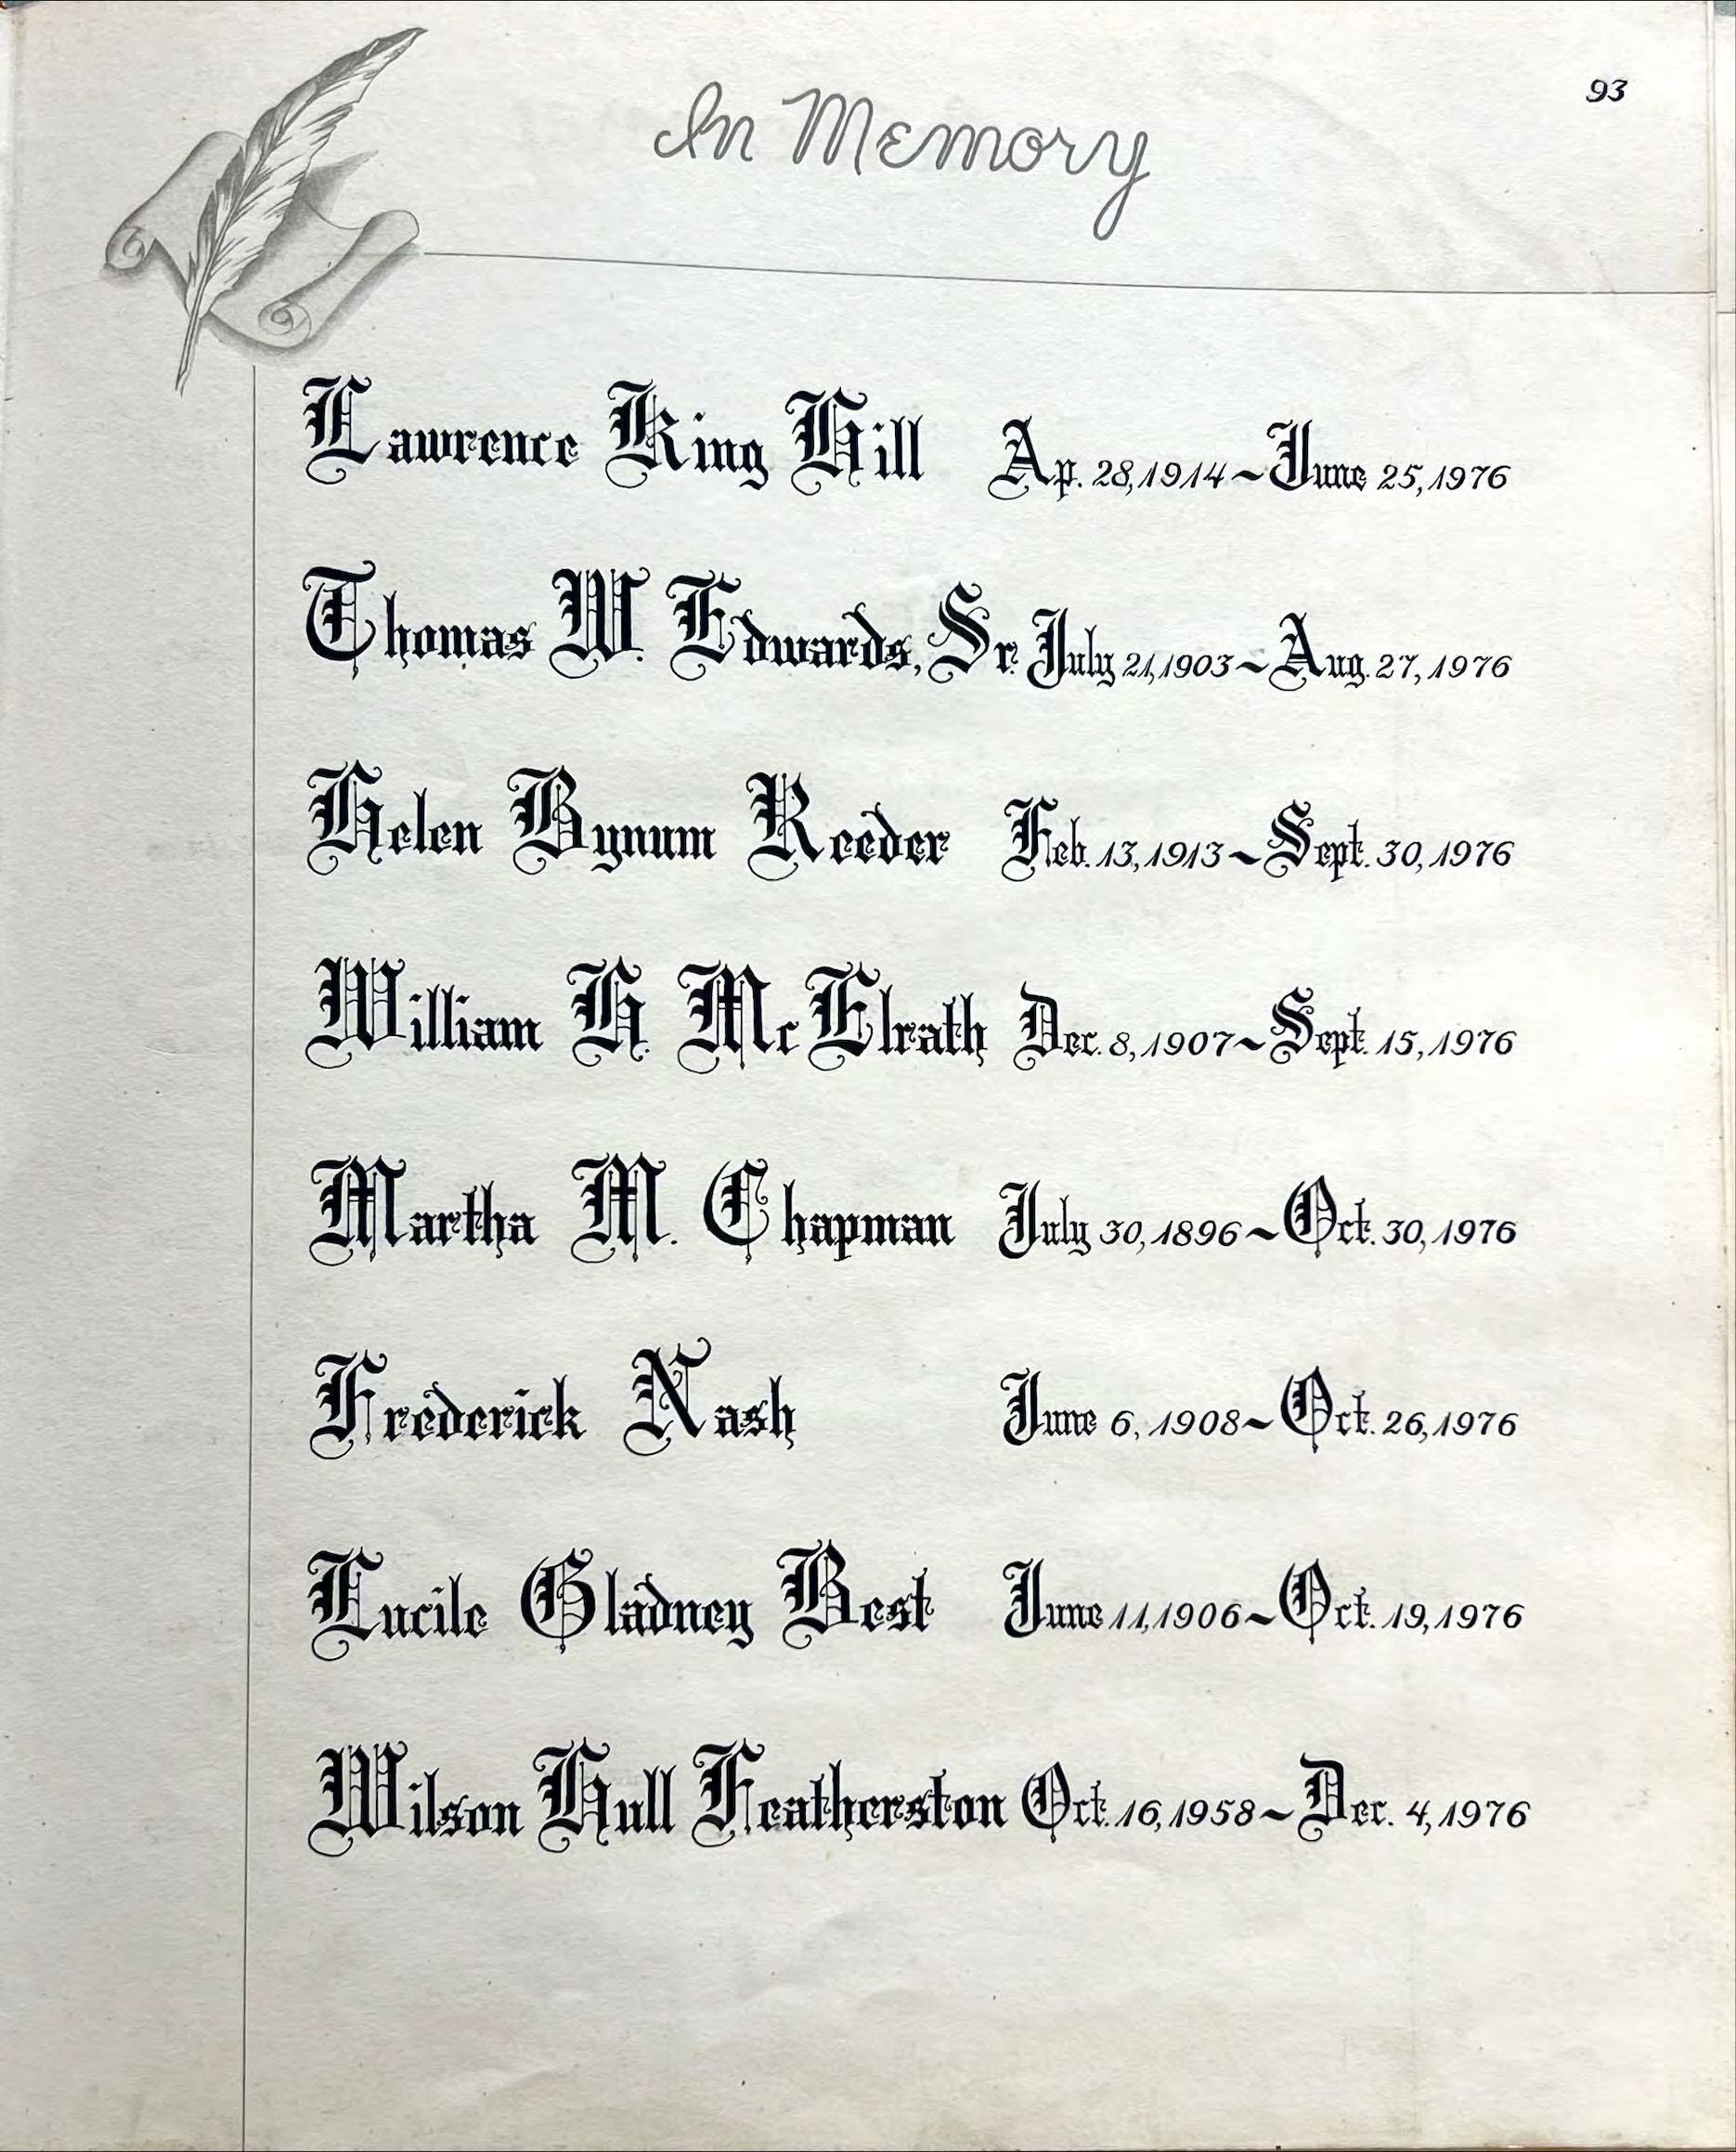 93
In Memory
Lawrence King Hill Ap. 28, 1914 ~ June 25, 1976
Thomas W. Edwards, Sr. July 21, 1903 ~ Aug. 27, 1976
Helen Bynum Reeder Feb. 13, 1913 ~ Sept. 30, 1976
William H. McElrath Dec. 8, 1907 ~ Sept. 15, 1976
Martha M. Chapman July 30, 1896 ~ Oct. 30, 1976
Frederick Nash June 6, 1908 ~ Oct. 26, 1976
Lucile Gladney Best June 11, 1906 ~ Oct. 19, 1976
Wilson Hull Featherston Oct. 16, 1958 ~ Dec. 4, 1976